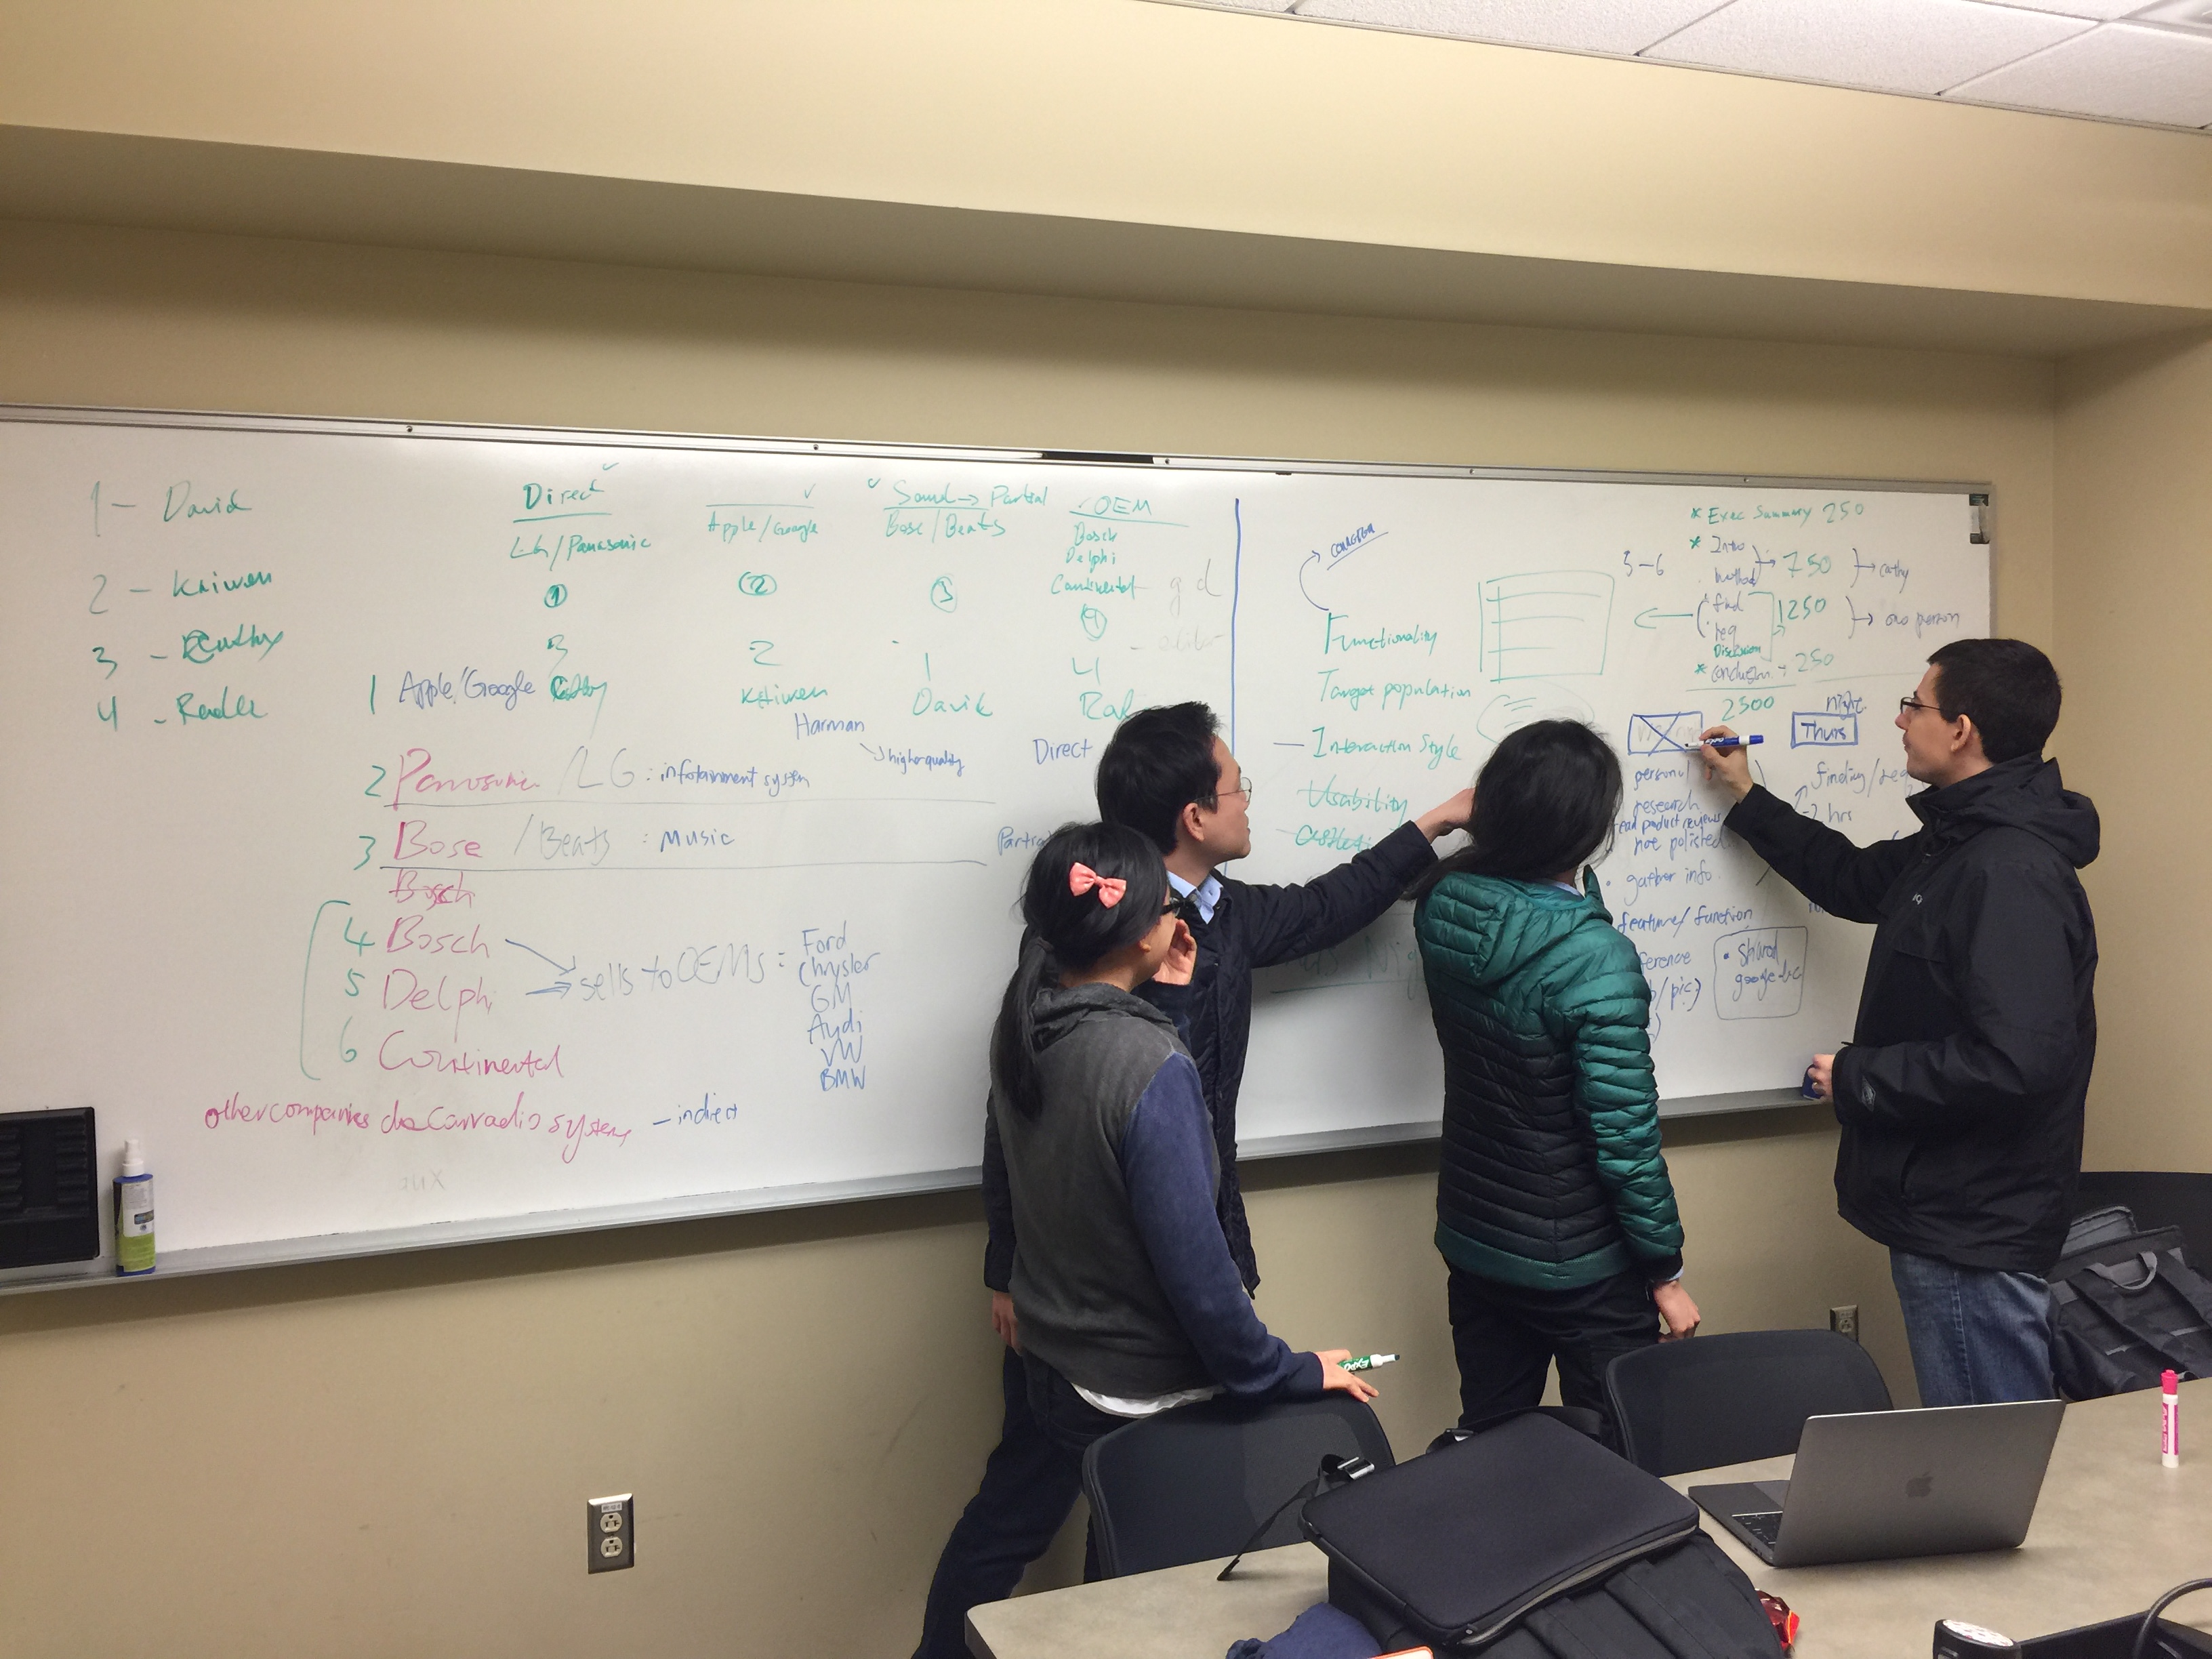 1 - David
2 - Kaiwen
3 - Cathy
4 -
Direct
LG/Panasonic
①
3
Cathy
Apple/Google
②
2
Kaiwen
Harman
higher quality
Sound → Partial
Bose/Beats
③
1
David
OEM
Bosch
Delphi
Continental
④
4
1 Apple/Google
Direct
2 Panasonic /LG : infotainment system
3 Bose /Beats : Music
Bosch
4 Bosch
5 Delphi
6 Continental
sells to OEMs :
Ford
Chrysler
GM
Audi
VW
BMW
other companies do Car radio systems - indirect
aux
Functionality
Target population
- Interaction Style
Usability
* Exec Summary 250
* Intro
750
cathy
3-6
find
req
Discussion
1250
one person
* conclusion + 250
2500
night
Thurs
personal
research
read product reviews
not polished
• gather info
feature/ function
• shared
google doc
finding/req
hrs
EXPO